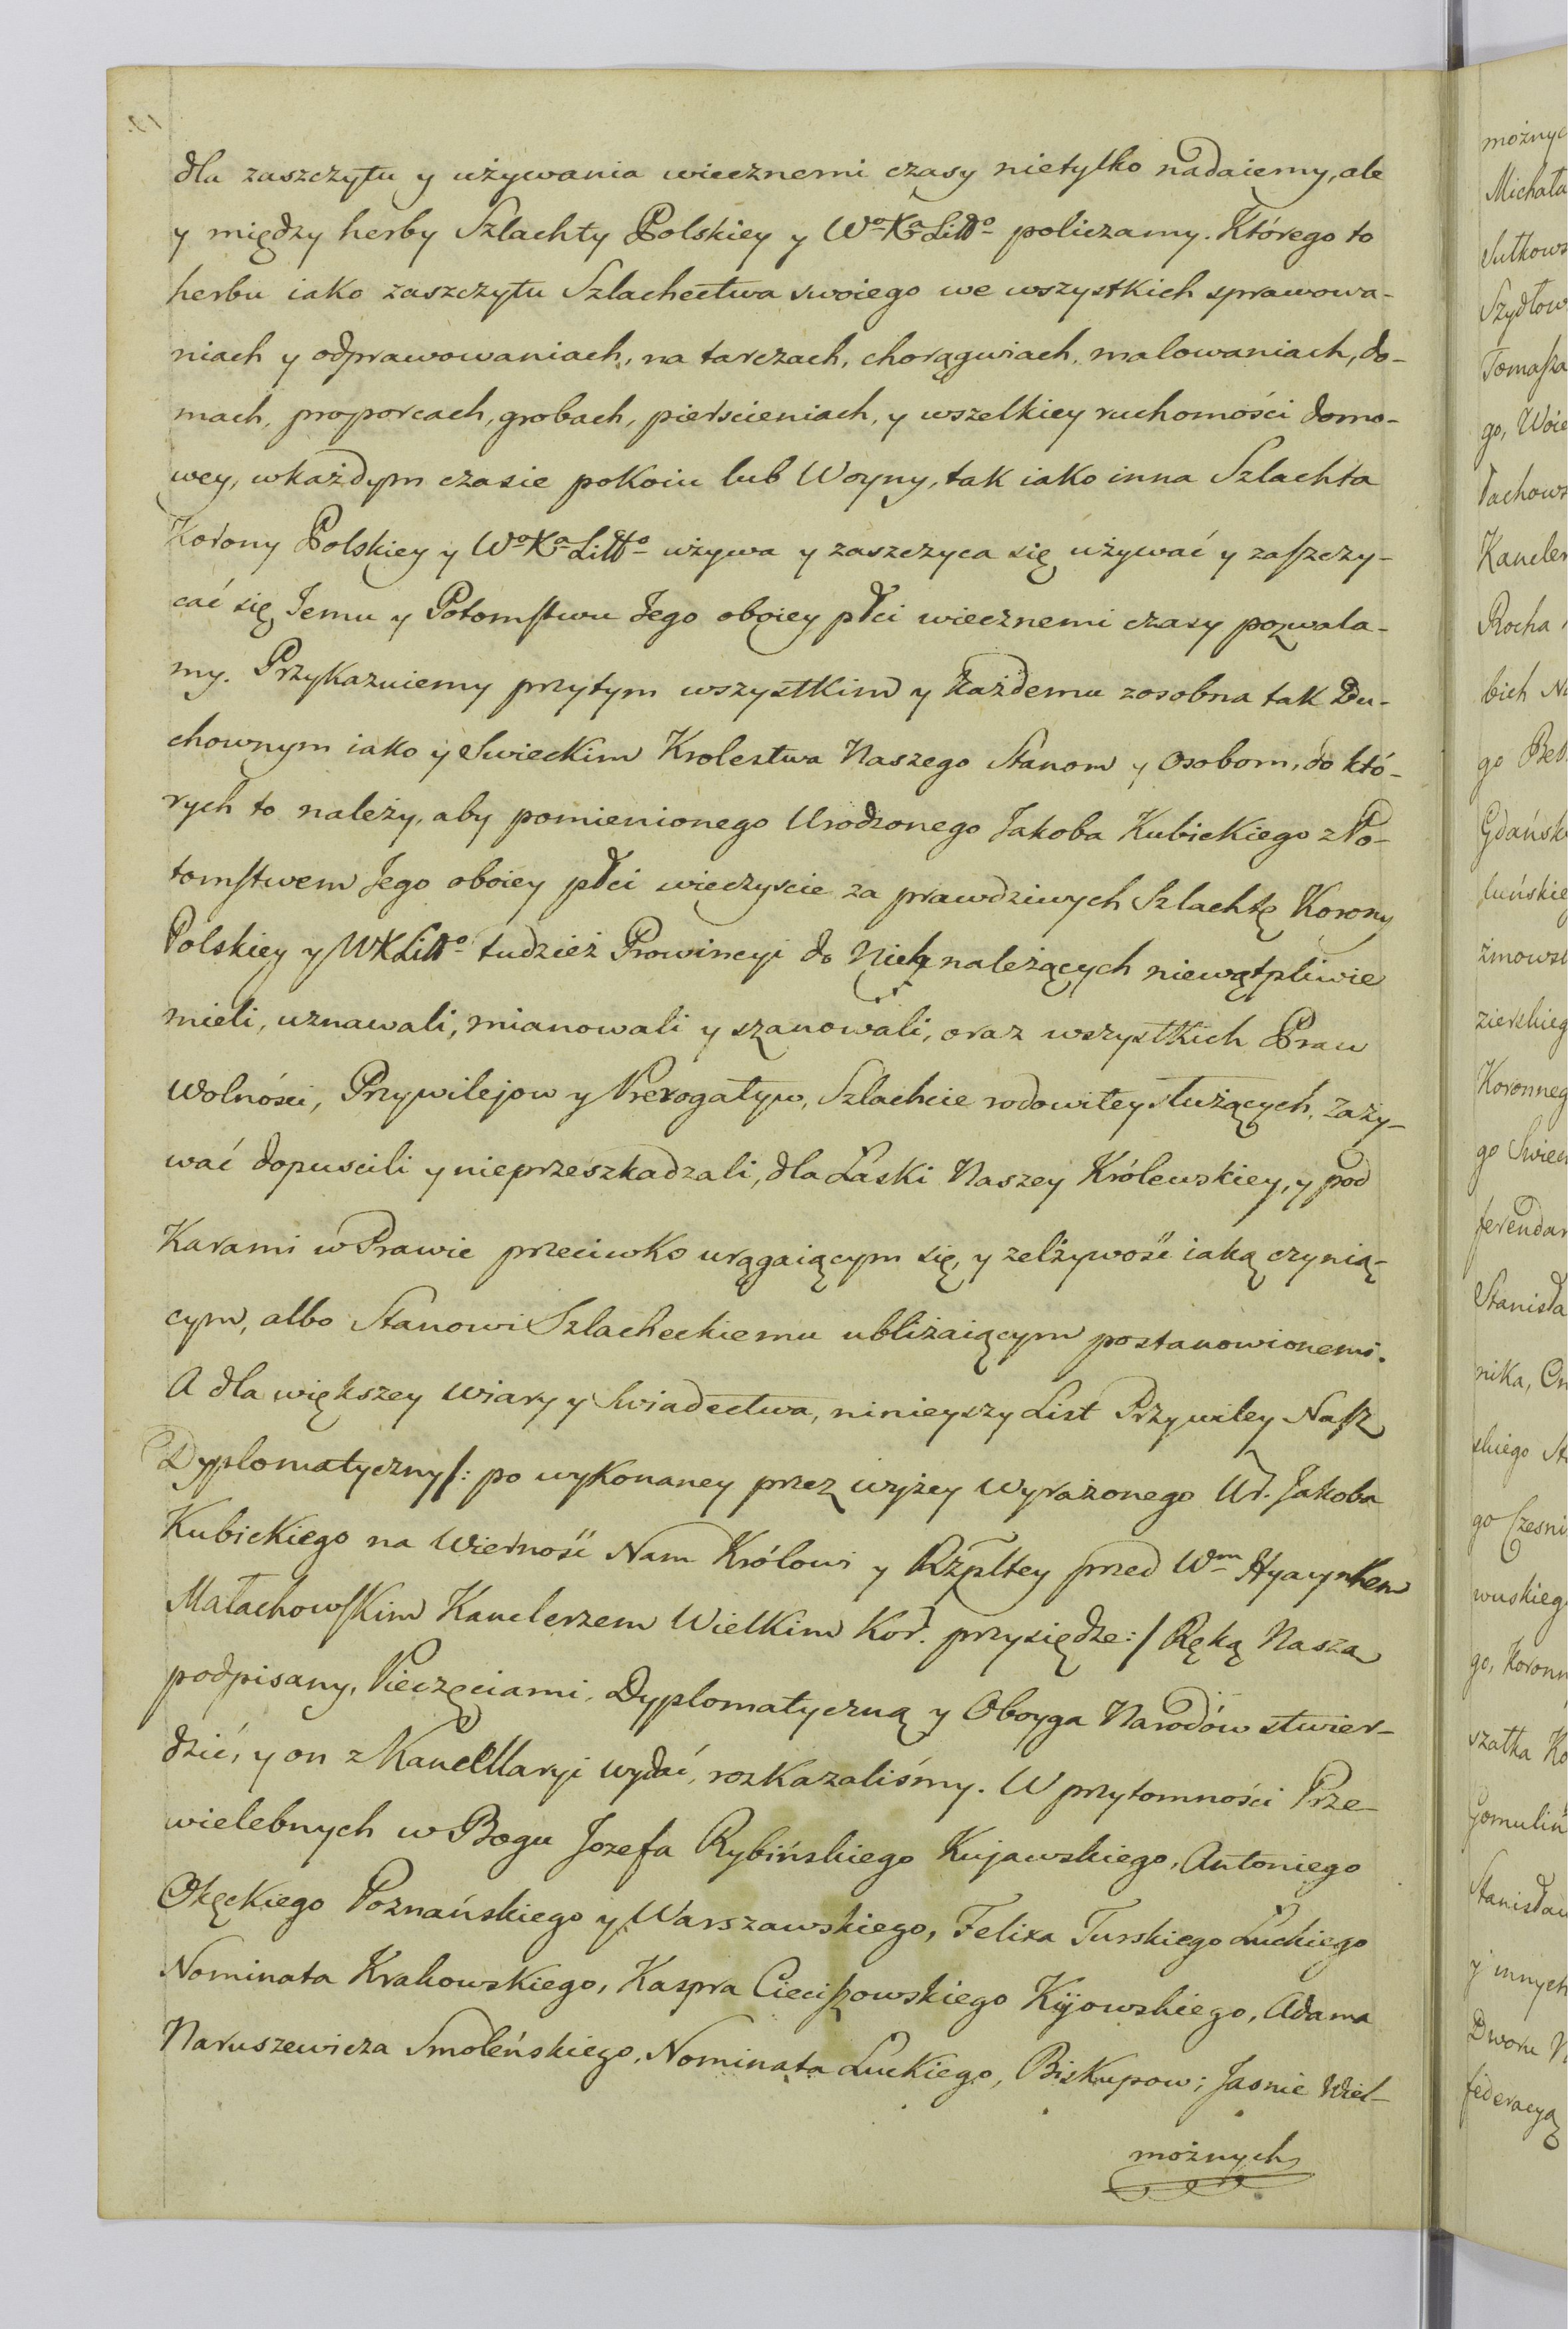 dla zaszczytu y używania wiecznemi czasy nietylko nadaiemy, ale
y między herby Szlachty Polskiey y Wo Ka Litto policzamy. Którego to
herbu iako zaszczytu Szlachectwa swoiego we wszystkich sprawowa-
niach y odprawowaniach, na tarczach, chorągwiach, malowaniach, do-
mach, proporcach, grobach, pierścieniach, y wszelkiey ruchomości domo-
wey, wkażdym czasie pokoiu lub Woyny, tak iako inna Szlachta
Korony Polskiey y Wo Ka Litto używa y zaszczyca się, używać y zaszczy-
cać się Jemu y Potomstwu Jego oboiey płci wiecznemi czasy pozwala-
my. Przykazuiemy przytym wszystkim y każdemu zosobna tak Du-
chownym iako y Swieckim Krolestwa Naszego Stanom y Osobom, do któ-
rych to należy, aby pomienionego Urodzonego Jakoba Kubickiego z Po-
tomstwem Jego oboiey płci wieczyscie za prawdziwych Szlachtę Korony
Polskiey y WKLitto tudzież Prowincyi do Nich należących niewątpliwie
mieli, uznawali, mianowali y szanowali, oraz wszystkich Praw
Wolności, Przywilejow y Prerogatyw, Szlachcie rodowitey służących, zaży-
wać dopuscili y nieprzeszkadzali, dla Łaski Naszey Królewskiey, y pod
Karami w Prawie przeciwko urągaiącym się, y zelżywość iaką czynią-
cym, albo Stanowi Szlacheckiemu ubliżaiącym postanowionemi.
A dla większey Wiary y Swiadectwa, ninieyszy List Przywiley Nasz
Dyplomatyczny /: po wykonaney przez wyżey Wyrażonego Ur. Jakoba
Kubickiego na Wierność Nam Królowi y Rzpltey przed Wm Hyacyntem
Małachowskim Kanclerzem Wielkim Kor. przysiędze :/ Ręką Naszą
podpisany, Pieczęciami, Dyplomatyczną y Oboyga Narodów stwier-
dzić, y on z Kancellaryi wydać, rozkazaliśmy. W przytomności Prze-
wielebnych w Bogu Jozefa Rybińskiego Kujawskiego, Antoniego
Okęckiego Poznańskiego y Warszawskiego, Felixa Turskiego Łuckiego
Nominata Krakowskiego, Kaspra Cieciszowskiego Kijowskiego, Adama
Naruszewicza Smoleńskiego, Nominata Łuckiego, Biskupow; Jasnie Wiel-
możnych
możnyc
Michała
Sułkows
Szydłow
Tomasza
go, Woie
łachows
Kancler
Rocha
bich
Gdańsk
żmows
Koronneg
go Swiec
ferendar
Stanisła
nika,
go Czesni
go, Koronn
szałka Ko
Gomuliń
Stanisław
y innych
Dworu N
federacyą